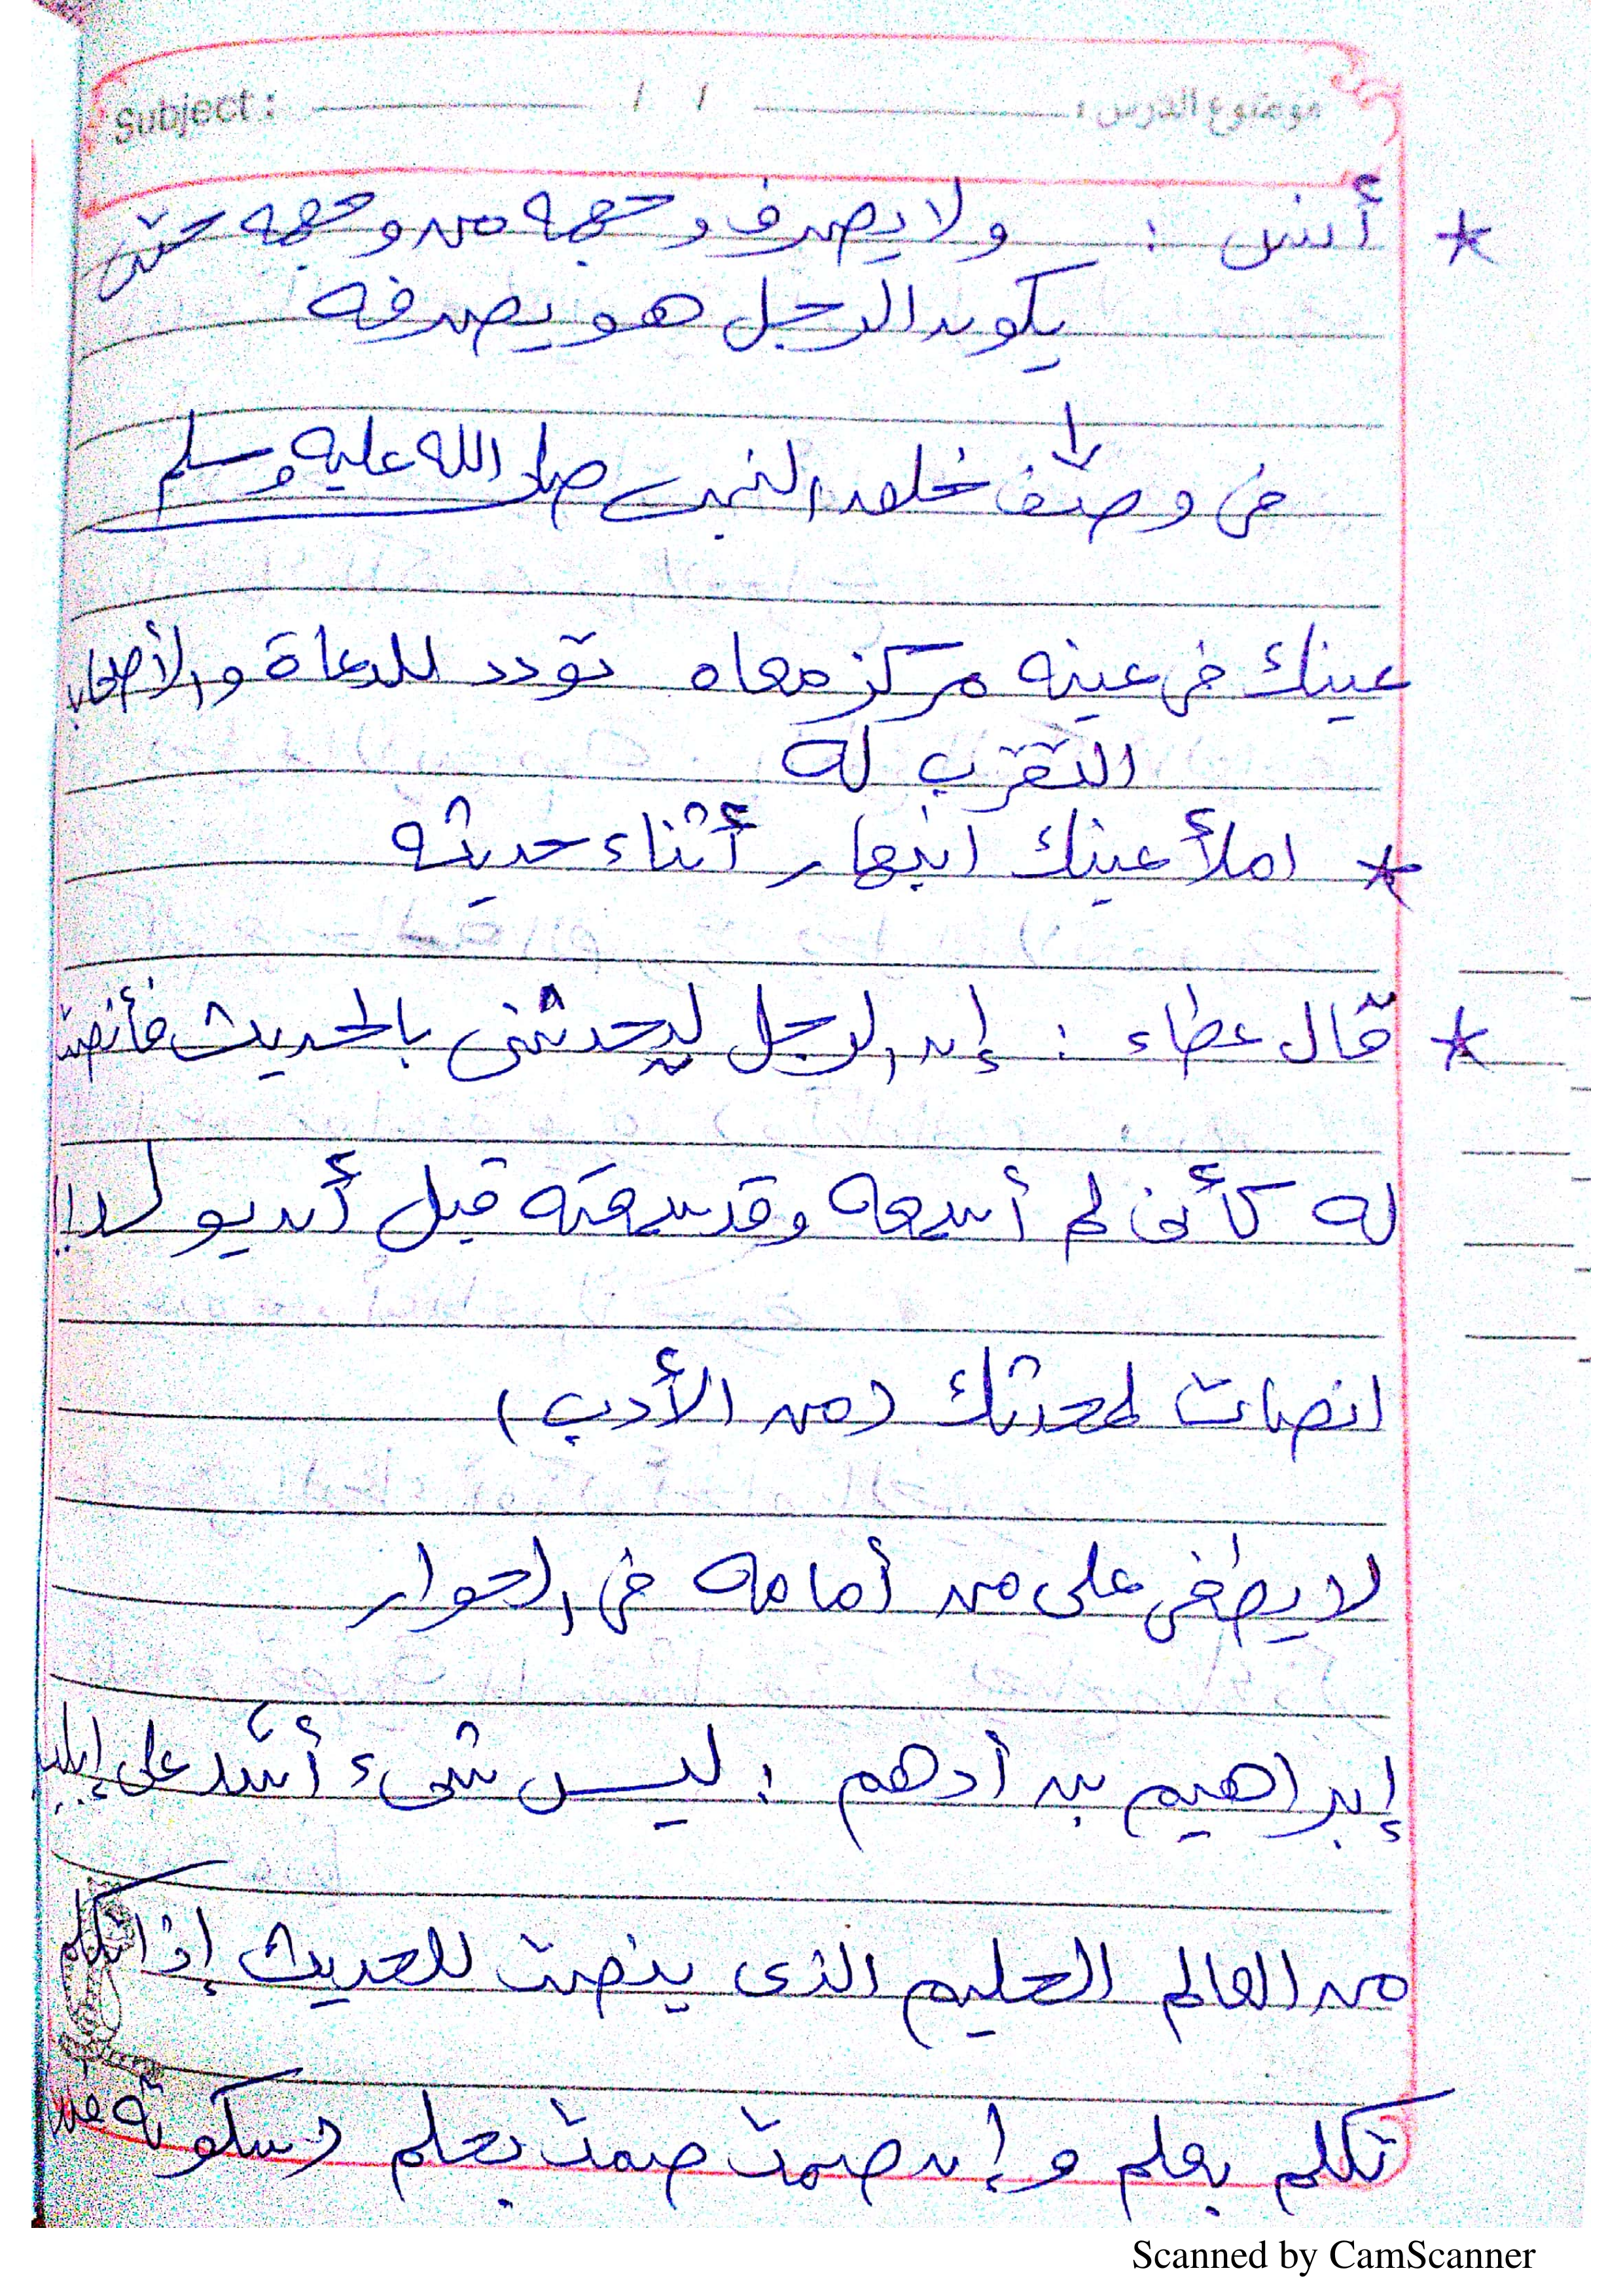 Subject : / / موضوع الدرس :
* أنس : ولا يصرف وجهه من وجهه حتى
يكون الرجل هو يصرفه
↓
في وصف خلق النبي صلى الله عليه وسلم
عينك في عينه مركز معاه تودد للدعاة والأصحاب
التقرب له
* املأ عينك انبهار أثناء حديثه
* قال عطاء : إن الرجل ليحدثني بالحديث فأنصت
له كأني لم أسمعه وقد سمعته قبل أن يولد!!
انصات لمحدثك (من الأدب)
لا يطغى على من أمامه في الحوار
إبراهيم بن أدهم : ليس شيء أشد على إبليس
من العالم الحليم الذى ينصت للحديث إذا تكلم
تكلم بعلم وإن صمت صمت بحلم (سكوته
Scanned by CamScanner